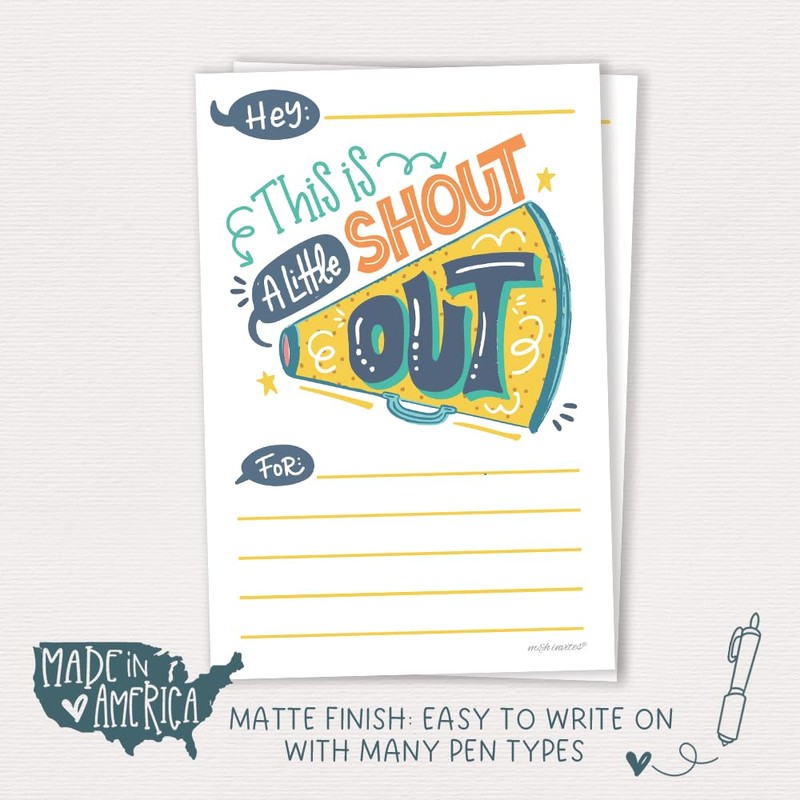 Hey:
This is
A Little
SHOUT
OUT
FOR:
m&h invites®
MADE IN
AMERICA
MATTE FINISH: EASY TO WRITE ON
WITH MANY PEN TYPES